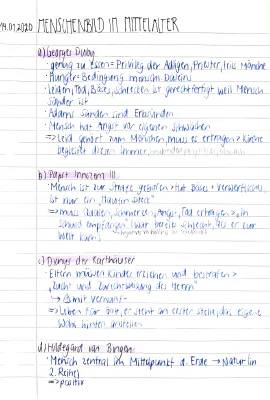 14.01.2020 MENSCHENBILD IM MITTELALTER
a) Georges Duby
· genug zu Essen = Privileg der Adligen, Priester, teils Mönche
· Hunger = Bedingung menschl. Daseins
· Leiden, Tod, Böses, Schrecken ist gerechtfertigt weil Mensch
Sünder ist
· Adams Sünden sind Erbsünden
· Mensch hat Angst vor eigenen Schwächen
⇒ Leid gehört zum Menschen, muss es ertragen > Kirche
begleitet diesen immer
b) Papst Innozenz III
· Mensch ist zur Strafe geboren > tut Böses + Verwerfliches,
ist nur ein "Haufen Dreck"
⇒ muss Qualen, Schmerzen, Angst, Tod ertragen > in
Schuld empfangen (war bereits schlecht, als er zur
Welt kam)
c) Dionys der Karthäuser
· Eltern müssen Kinder erziehen und bestrafen >
"Zucht und Zurechtweisung des Herrn"
↳ mit Vernunft
⇒ Leben für Gott, er steht an erster Stelle, das eigene
Wohl hinten anstellen
d) Hildegard von Bingen
· Mensch zentral im Mittelpunkt d. Erde → Natur (in
2. Reihe)
⇒ positiv